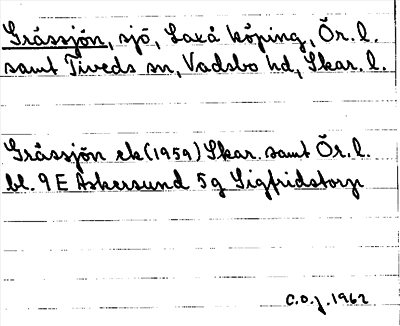 Gråssjön, sjö, Laxå köping, Ör. l.
samt Tiveds sn, Vadsbo hd, Skar. l.
Gråssjön ek (1959) Skar. samt Ör. l.
bl. 9 E Askersund 5g Sigfridstorp
C.O.J. 1962